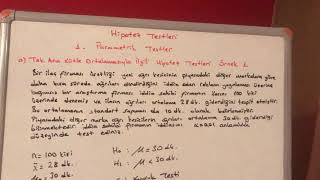 Hipotez Testleri
1. Parametrik Testler
a) Tek Ana Kütle Ortalamasıyla İlgili Hipotez Testleri Örnek 1
Bir ilaç firması ürettiği yeni ağrı kesicinin piyasadaki diğer markalara göre
daha kısa sürede ağrıları dindirdiğini iddia eden reklam yayınlaması üzerine
bağımsız bir araştırma firması iddia sahibi firmanın ilacını 100 kişi
üzerinde denemiş ve ilacın ağrıları ortalama 28 dk. giderdiğini tespit etmiştir.
Bu ortalamanın standart sapması da 10 dk. olarak belirlenmiştir.
Piyasadaki diğer marka ağrı kesicilerin ağrıları ortalama 30 dk giderdiği
bilinmektedir. iddia sahibi firmanın iddiasını anlamlılık
düzeyinde test ediniz.
n = 100 kişi
x̄ = 28 dk.
μ = 30 dk.
H₀ : μ = 30 dk.
H₁ : μ < 30 dk.
Testi